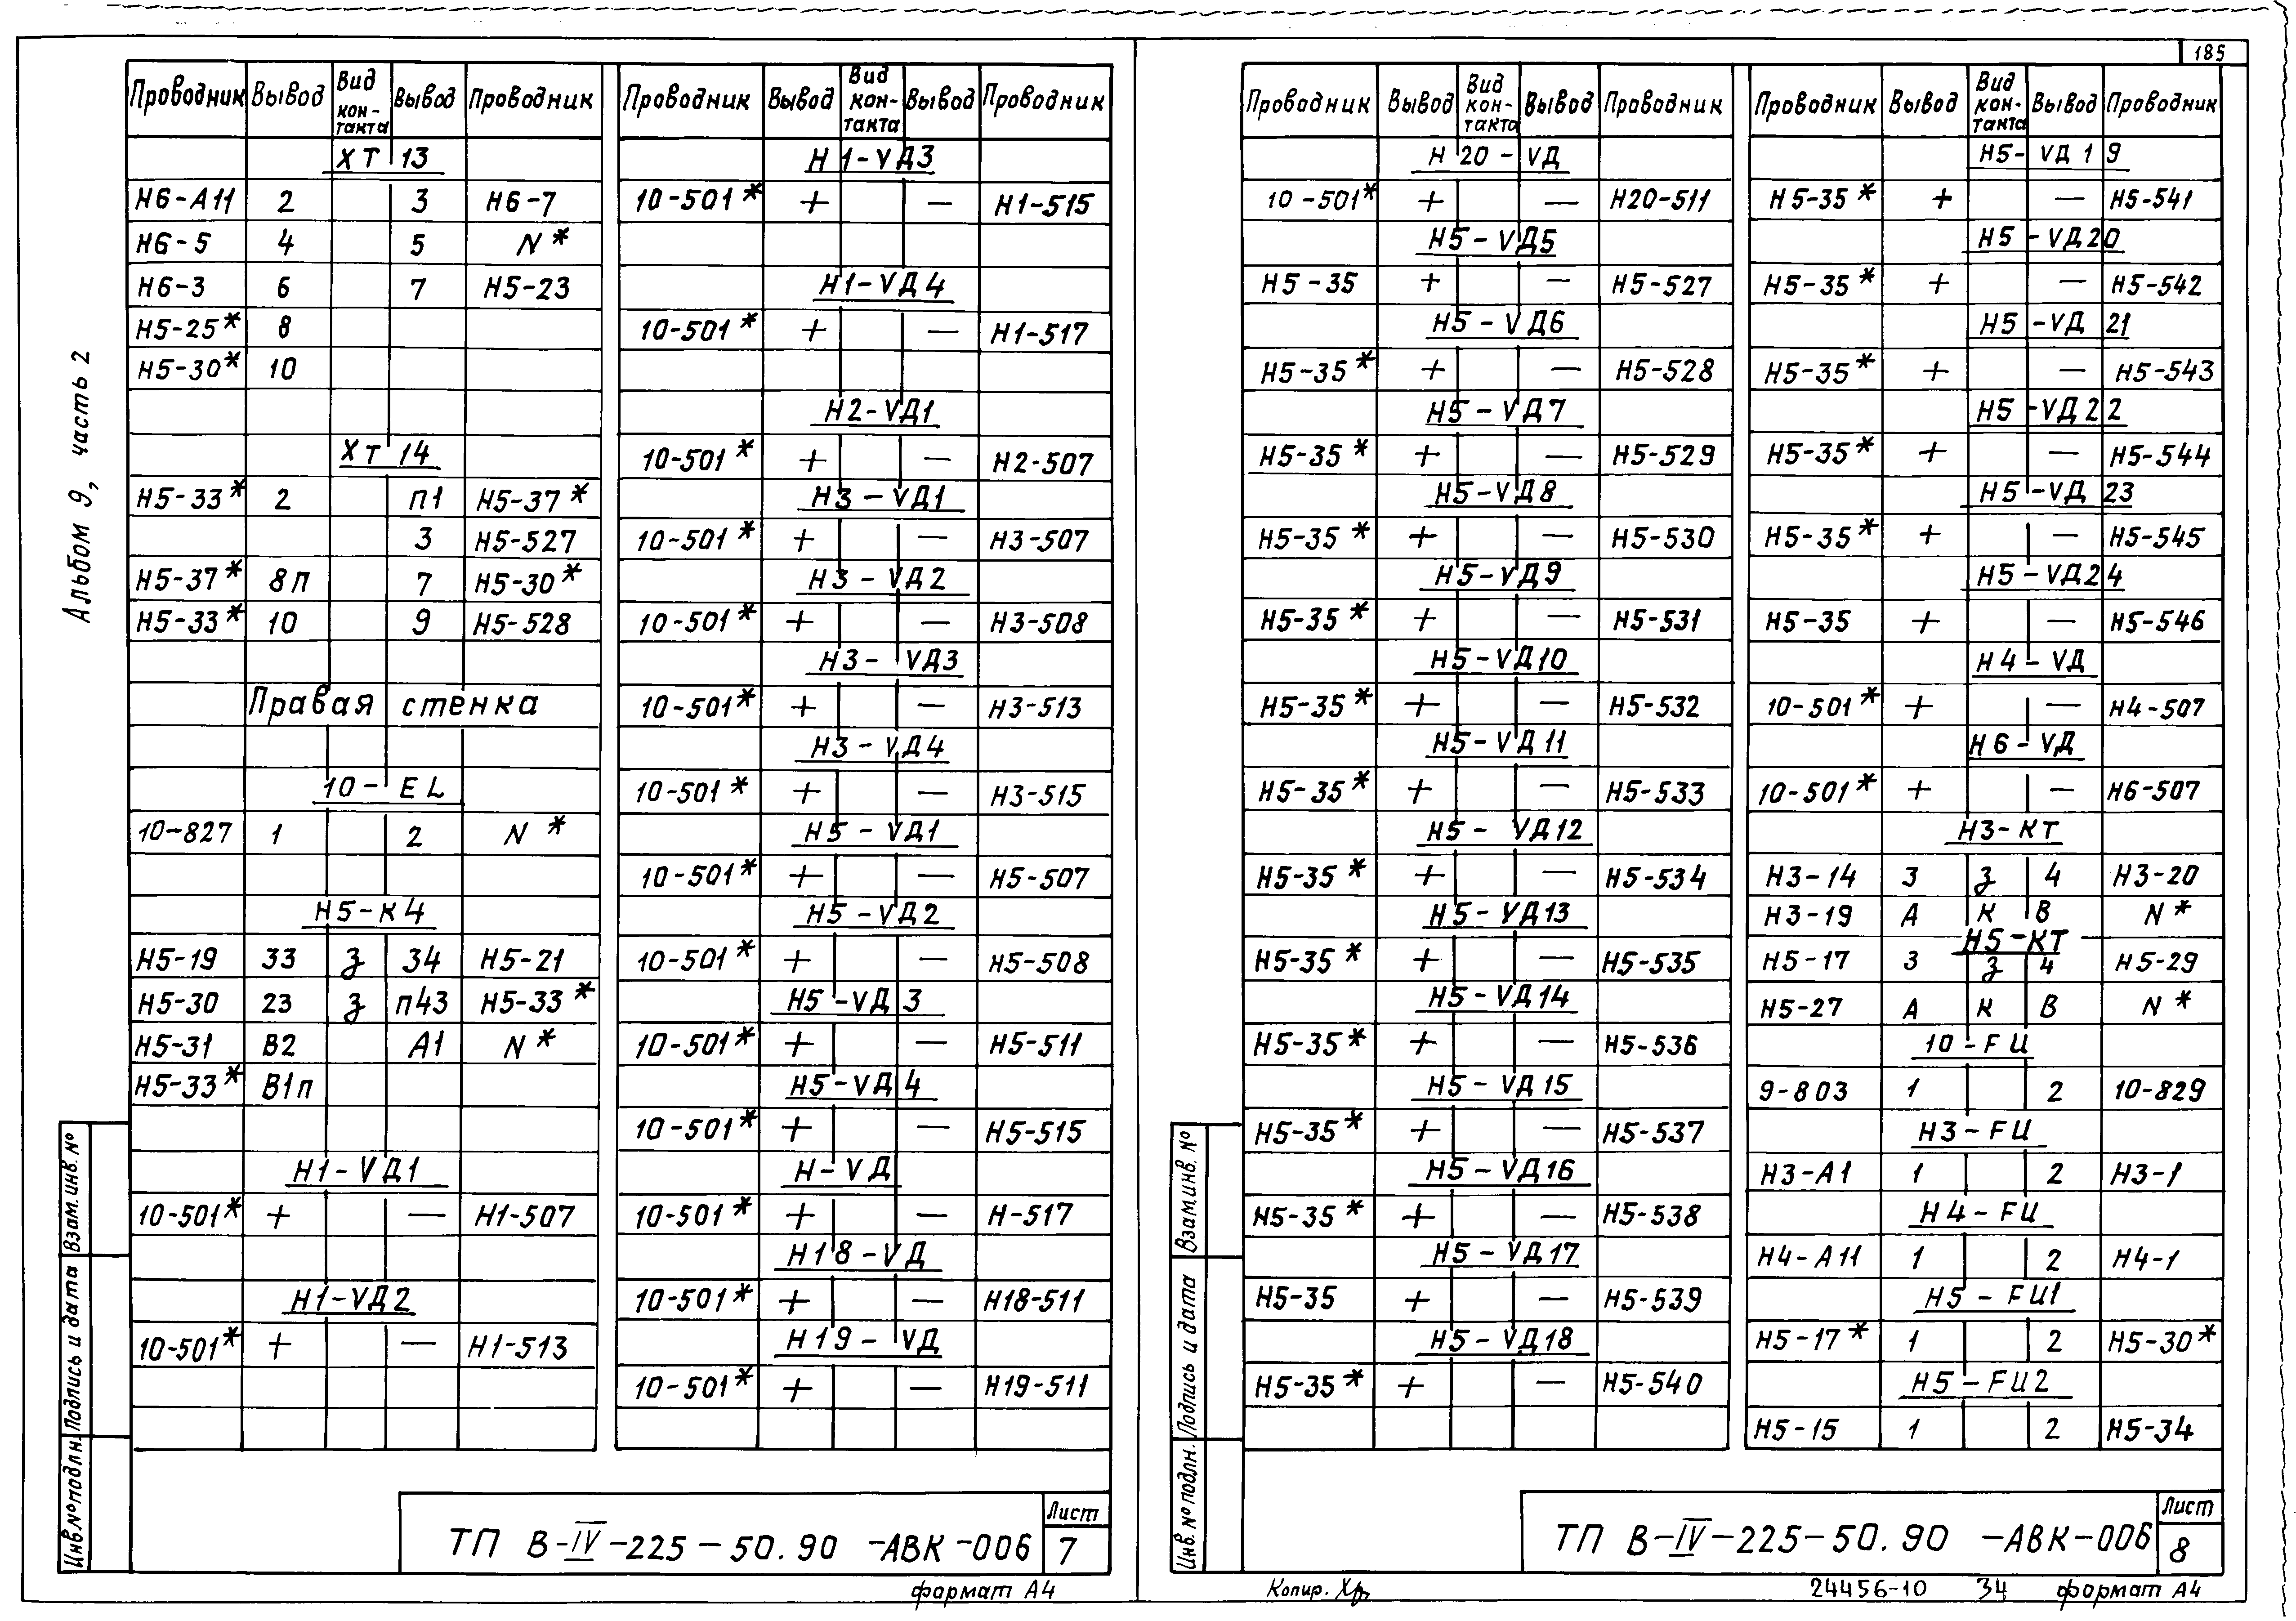 185
Альбом 9, часть 2
Проводник Вывод Вид кон- такта Вывод Проводник
ХТ 13
Н6-А11 2 3 Н6-7
Н6-5 4 5 N*
Н6-3 6 7 Н5-23
Н5-25* 8
Н5-30* 10
ХТ 14
Н5-33* 2 П1 Н5-37*
3 Н5-527
Н5-37* 8П 7 Н5-30*
Н5-33* 10 9 Н5-528
Правая стенка
10-EL
10-827 1 2 N*
Н5-К4
Н5-19 33 З 34 Н5-21
Н5-30 23 З П43 Н5-33*
Н5-31 В2 А1 N*
Н5-33* В1п
Н1-VД1
10-501* + — Н1-507
Н1-VД2
10-501* + — Н1-513
Проводник Вывод Вид кон- такта Вывод Проводник
Н1-VД3
10-501* + — Н1-515
Н1-VД4
10-501* + — Н1-517
Н2-VД1
10-501* + — Н2-507
Н3-VД1
10-501* + — Н3-507
Н3-VД2
10-501* + — Н3-508
Н3-VД3
10-501* + — Н3-513
Н3-VД4
10-501* + — Н3-515
Н5-VД1
10-501* + — Н5-507
Н5-VД2
10-501* + — Н5-508
Н5-VД3
10-501* + — Н5-511
Н5-VД4
10-501* + — Н5-515
Н-VД
10-501* + — Н-517
Н18-VД
10-501* + — Н18-511
Н19-VД
10-501* + — Н19-511
Взам.инв.№
Подпись и дата
Инв.№подлн.
ТП В-IV-225-50.90 -АВК-006
Лист
7
формат А4
Проводник Вывод Вид кон- такта Вывод Проводник
Н20-VД
10-501* + — Н20-511
Н5-VД5
Н5-35 + — Н5-527
Н5-VД6
Н5-35* + — Н5-528
Н5-VД7
Н5-35* + — Н5-529
Н5-VД8
Н5-35* + — Н5-530
Н5-VД9
Н5-35* + — Н5-531
Н5-VД10
Н5-35* + — Н5-532
Н5-VД11
Н5-35* + — Н5-533
Н5-VД12
Н5-35* + — Н5-534
Н5-VД13
Н5-35* + — Н5-535
Н5-VД14
Н5-35* + — Н5-536
Н5-VД15
Н5-35* + — Н5-537
Н5-VД16
Н5-35* + — Н5-538
Н5-VД17
Н5-35 + — Н5-539
Н5-VД18
Н5-35* + — Н5-540
Проводник Вывод Вид кон- такта Вывод Проводник
Н5-VД19
Н5-35* + — Н5-541
Н5-VД20
Н5-35* + — Н5-542
Н5-VД21
Н5-35* + — Н5-543
Н5-VД22
Н5-35* + — Н5-544
Н5-VД23
Н5-35* + — Н5-545
Н5-VД24
Н5-35 + — Н5-546
Н4-VД
10-501* + — Н4-507
Н6-VД
10-501* + — Н6-507
Н3-КТ
Н3-14 3 З 4 Н3-20
Н3-19 А К В N*
Н5-КТ
Н5-17 3 З 4 Н5-29
Н5-27 А К В N*
10-FU
9-803 1 2 10-829
Н3-FU
Н3-А1 1 2 Н3-1
Н4-FU
Н4-А11 1 2 Н4-1
Н5-FU1
Н5-17* 1 2 Н5-30*
Н5-FU2
Н5-15 1 2 Н5-34
Взам.инв.№
Подпись и дата
Инв.№подлн.
ТП В-IV-225-50.90 -АВК-006
Лист
8
Копир. 24456-10 34 формат А4